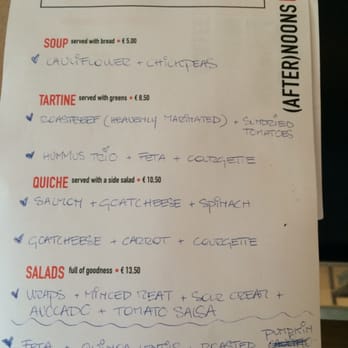 (AFTER)NOONS
SOUP served with bread • € 5.00
CAULIFLOWER + CHICKPEAS
TARTINE served with greens • € 8.50
ROASTBEEF (HEAVENLY MARINATED) + SUNDRIED
TOMATOES
HUMMUS TRIO + FETA + COURGETTE
QUICHE served with a side salad • € 10.50
SALMON + GOATCHEESE + SPINACH
GOATCHEESE + CARROT + COURGETTE
SALADS full of goodness • € 13.50
WRAPS + MINCED MEAT + SOUR CREAM +
AVOCADO + TOMATO SALSA
PUMPKIN
FETA + QUINOA LENTILS + ROASTED